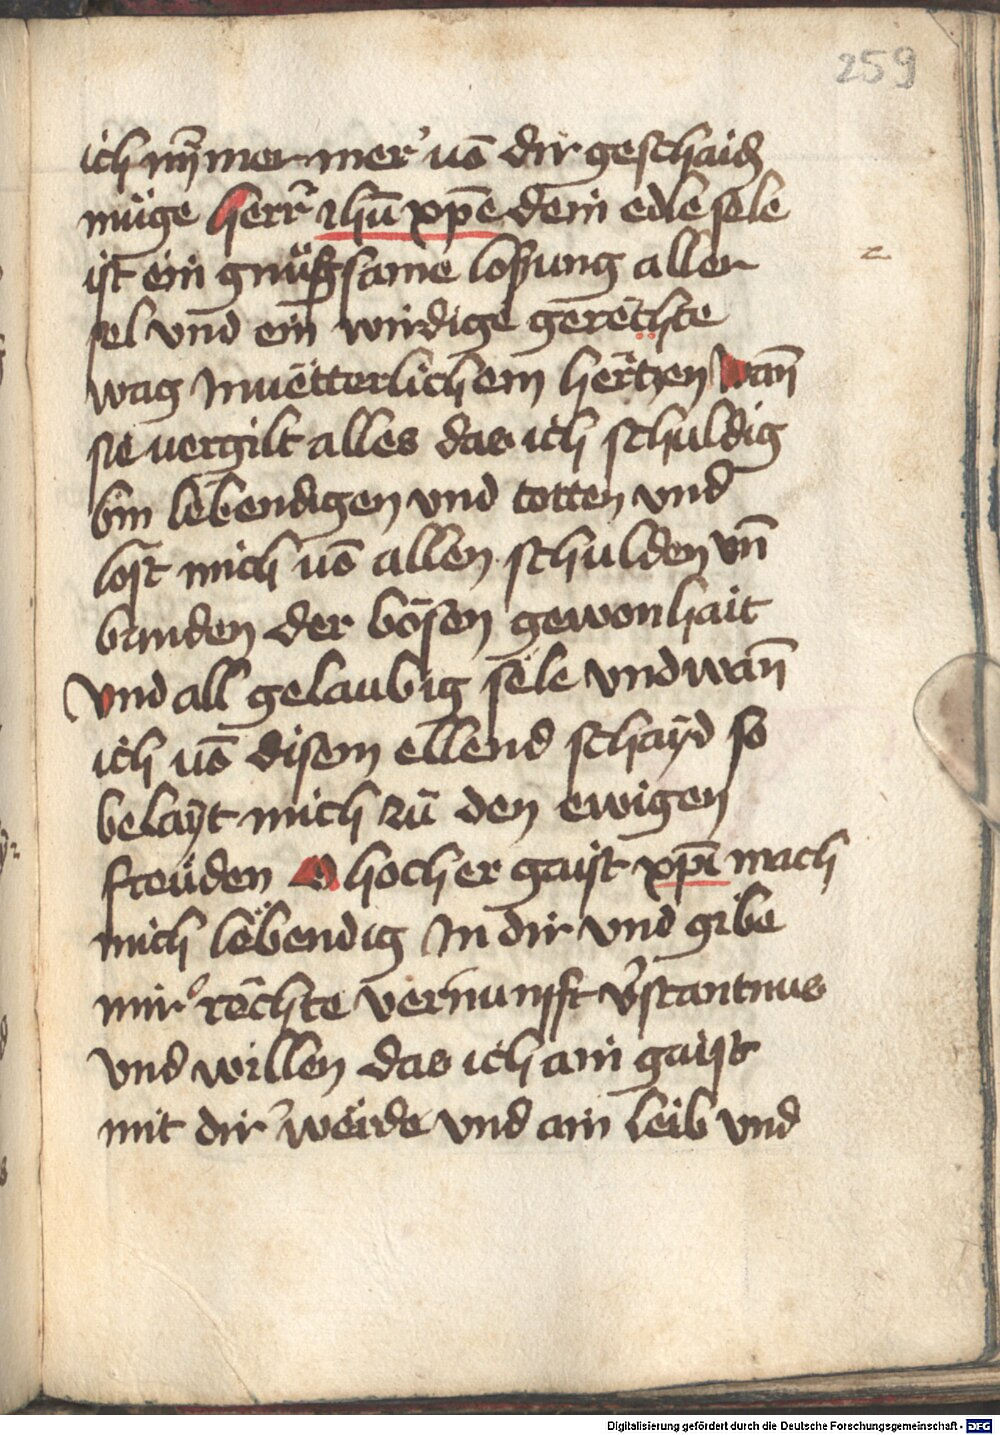 259
ich nȳmer mer vō dir geschaidē
müge herr̄ Jhū xp̄e dein edle sele
ist ein gnügsame losung aller
sel vnd ein wirdige gerechte
wag In müetterlichem hertzen wan̄
sie vergilt alles das ich schuldig
bin lebendigen vnd totten vnd
lost mich vō allen schulden vn̄
banden der bösen gewonhait
vnd all gelaubig sele vnd wan̄
ich vō disem ellend schayd so
belayt mich zů den ewigen
freüden O hocher gaist xp̄i mach
mich lebendig In dir vnd gibe
mir rechte vernunfft v̄stantnus
vnd willen das ich ain gaist
mit dir werde vnd ain leib vnd
Digitalisierung gefördert durch die Deutsche Forschungsgemeinschaft - DFG